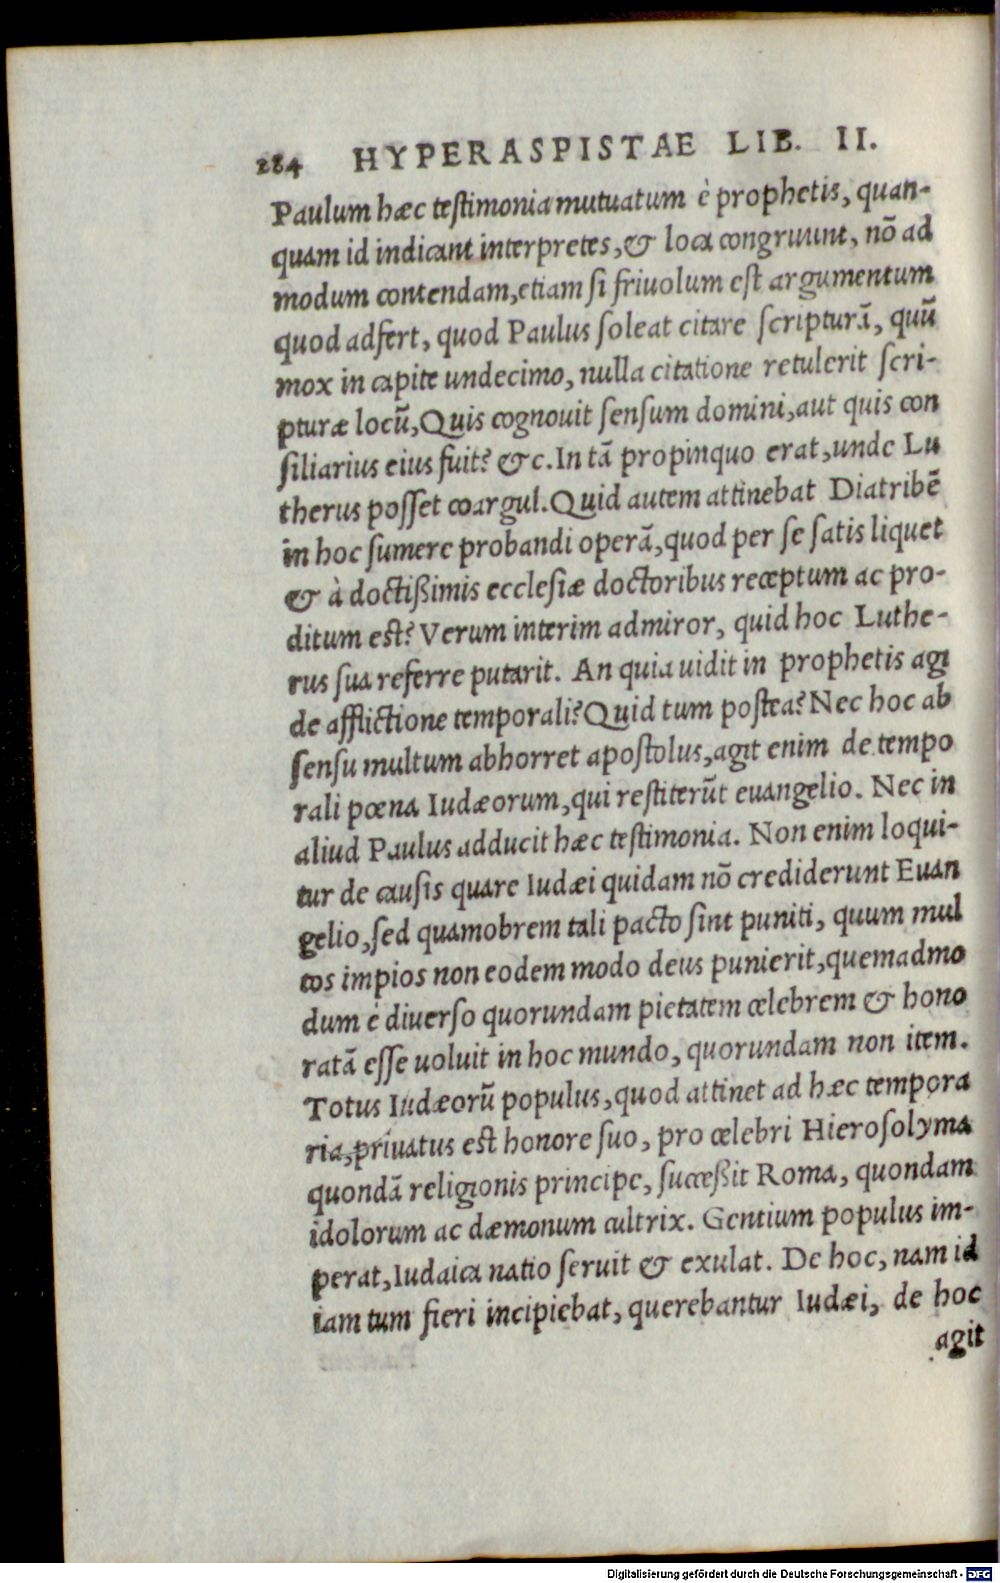 284 HYPERASPISTAE LIB. II.
Paulum hæc testimonia mutuatum è prophetis, quan-
quam id indicant interpretes, & loca congruunt, nõ ad
modum contendam, etiam si friuolum est argumentum
quod adfert, quod Paulus soleat citare scripturã, quũ
mox in capite undecimo, nulla citatione retulerit scri-
pturæ locũ, Quis cognouit sensum domini, aut quis con
siliarius eius fuit? &c. In tã propinquo erat, unde Lu
therus posset coargui. Quid autem attinebat Diatribẽ
in hoc sumere probandi operã, quod per se satis liquet
& à doctißimis ecclesiæ doctoribus receptum ac pro-
ditum est? Verum interim admiror, quid hoc Luthe-
rus sua referre putarit. An quia uidit in prophetis agi
de afflictione temporali? Quid tum postea? Nec hoc ab
sensu multum abhorret apostolus, agit enim de tempo
rali pœna Iudæorum, qui restiterũt euangelio. Nec in
aliud Paulus adducit hæc testimonia. Non enim loqui-
tur de causis quare Iudæi quidam nõ crediderunt Euan
gelio, sed quamobrem tali pacto sint puniti, quum mul
tos impios non eodem modo deus punierit, quemadmo
dum e diuerso quorundam pietatem celebrem & hono
ratã esse uoluit in hoc mundo, quorundam non item.
Totus Iudæorũ populus, quod attinet ad hæc tempora
ria, priuatus est honore suo, pro celebri Hierosolyma
quondã religionis principe, succeßit Roma, quondam
idolorum ac dæmonum cultrix. Gentium populus im-
perat, Iudaica natio seruit & exulat. De hoc, nam id
iam tum fieri incipiebat, querebantur Iudæi, de hoc
agit
Digitalisierung gefördert durch die Deutsche Forschungsgemeinschaft - DFG